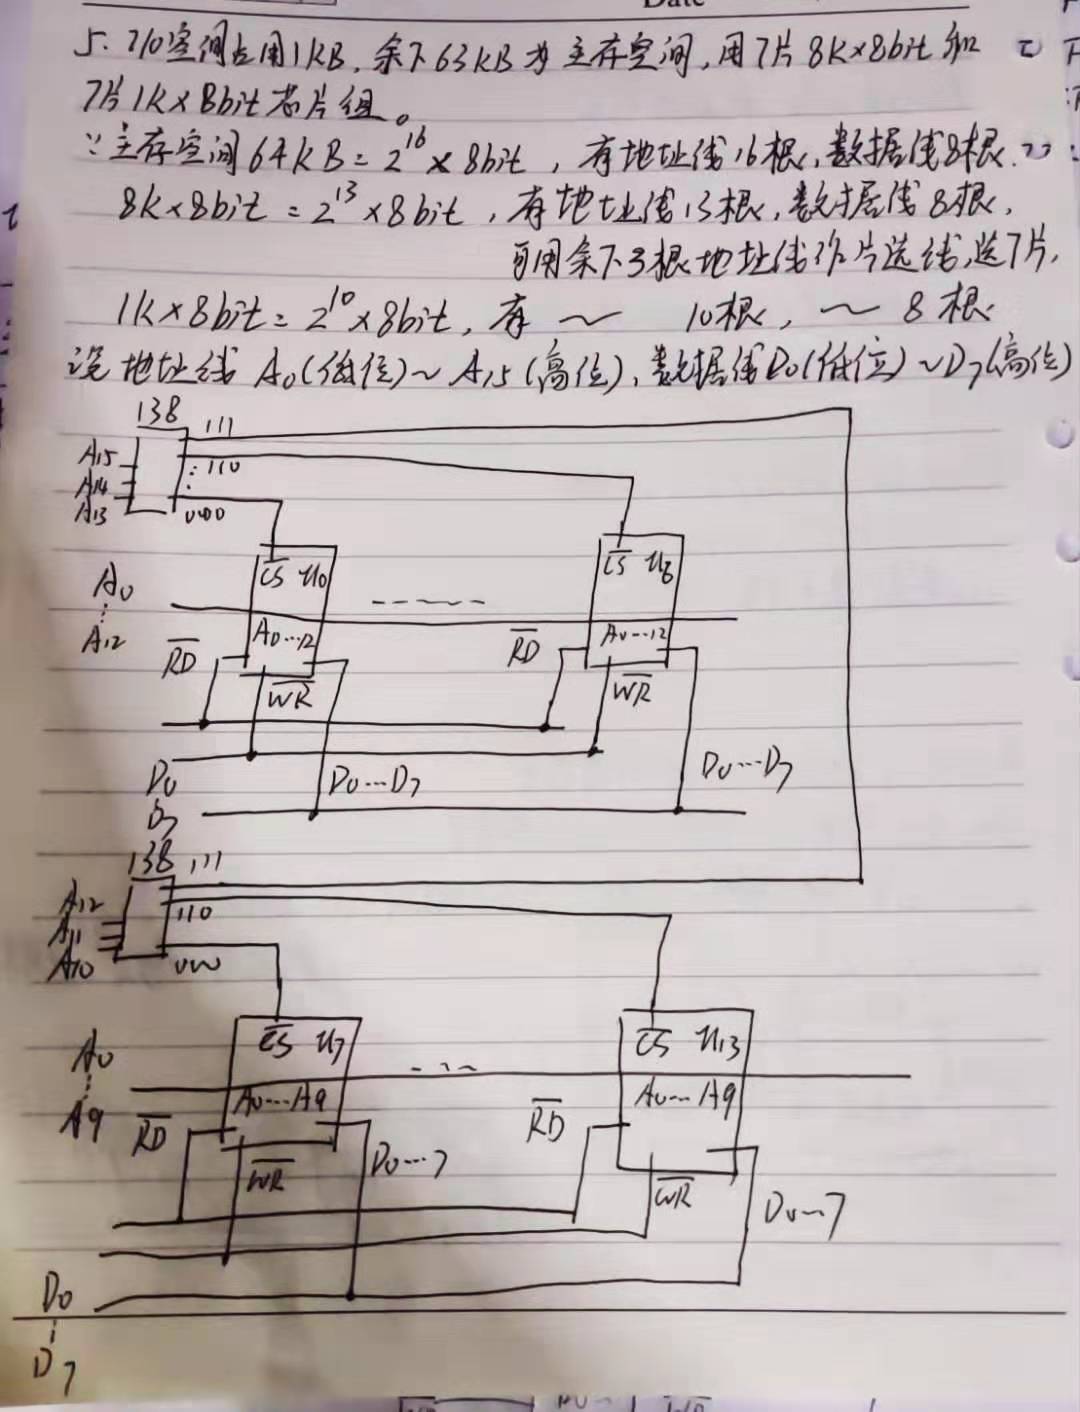 Date
5. I/O空间占用1KB,余下63KB为主存空间,用7片8K×8bit和
7片1K×8bit芯片组。
∵主存空间64KB=2^16×8bit,有地址线16根,数据线8根.
8K×8bit=2^13×8bit,有地址线13根,数据线8根,
可用余下3根地址线作片选线,选7片,
1K×8bit=2^10×8bit,有 ~ 10根, ~ 8根
设地址线A0(低位)~A15(高位),数据线D0(低位)~D7(高位)
138
111
A15
110
A14
A13
000
CS U0
CS U6
A0
A12
A0...12
A0...12
RD
RD
WR
WR
D0
D0...D7
D0...D7
D7
138
111
A12
110
A11
A10
000
CS U7
CS U13
A0
A9
A0...A9
A0...A9
RD
RD
WR
D0...7
WR
D0...7
D0
D7